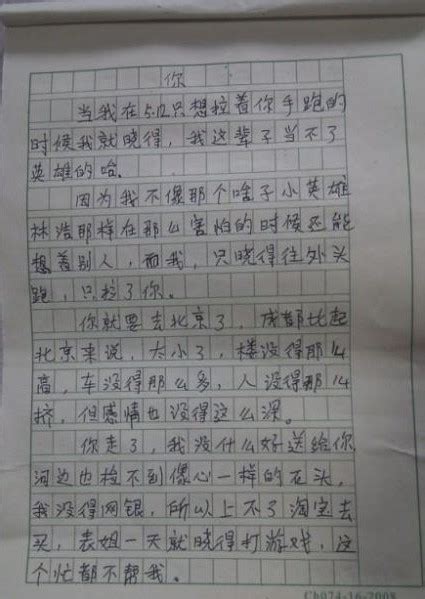 你
当我在5.12只想拉着你手跑的
时候我就晓得，我这辈子当不了
英雄的哈。
因为我不像那个啥子小英雄
林浩那样在那么害怕的时候还能
想着别人，而我，只晓得往外头
跑，只拉了你。
你就要去北京了，成都比起
北京来说，太小了，楼没得那么
高，车没得那么多，人没得那么
挤，但感情也没得这么深。
你走了，我没什么好送给你
河边也捡不到像心一样的石头，
我没得网银，所以上不了淘宝去
买，表姐一天就晓得打游戏，这
个忙都不帮我。
Cb074-16-2008